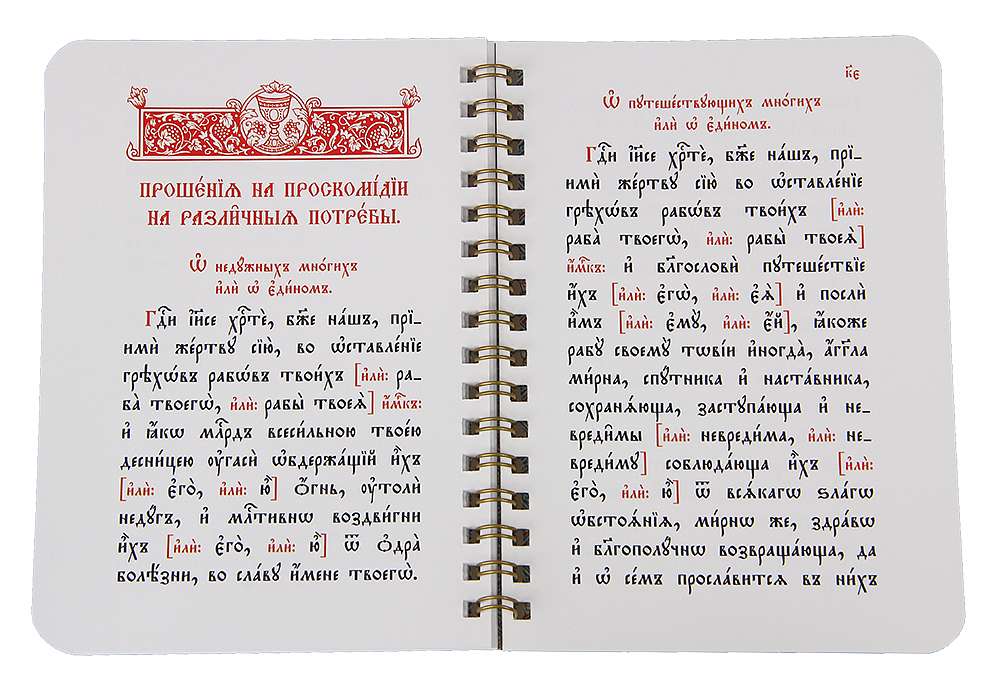 ПРОШЕ́НЇѦ НА ПРОСКОМИ́ДЇИ
НА РАЗЛИ̑ЧНЫѦ ПОТРЕ́БЫ.
Ѽ недꙋ́жныхъ мно́гихъ
и҆лѝ ѡ҆ є҆ди́номъ.
Гдⷭ҇и і҆и҃се хрⷭ҇тѐ, бж҃е на́шъ, прї-
имѝ же́ртвꙋ сїю̀, во ѡ҆ставле́нїе
грѣхѡ́въ рабѡ́въ твои́хъ [и҆лѝ: ра-
ба̀ твоегѡ̀, и҆лѝ: рабы̀ твоеѧ̀] и҆м҃къ:
и҆ ꙗ҆́кѡ млⷭ҇рдъ всеси́льною твое́ю
десни́цею ᲂу҆гасѝ ѡ҆бдержа́щїй и҆̀хъ
[и҆лѝ: є҆го̀, и҆лѝ: ю҆̀] ѻ҆́гнь, ᲂу҆толѝ
недꙋ́гъ, и҆ млⷭ҇тивнѡ воздви́гни
и҆̀хъ [и҆лѝ: є҆го̀, и҆лѝ: ю҆̀] ѿ ѻ҆дра̀
болѣ́зни, во сла́вꙋ и҆́мене твоегѡ̀.
к҃є
Ѽ пꙋтеше́ствꙋющихъ мно́гихъ
и҆лѝ ѡ҆ є҆ди́номъ.
Гдⷭ҇и і҆и҃се хрⷭ҇тѐ, бж҃е на́шъ, прї-
имѝ же́ртвꙋ сїю̀ во ѡ҆ставле́нїе
грѣхѡ́въ рабѡ́въ твои́хъ [и҆лѝ:
раба̀ твоегѡ̀, и҆лѝ: рабы̀ твоеѧ̀]
и҆м҃къ: и҆ блгⷭ҇овѝ пꙋтеше́ствїе
и҆́хъ [и҆лѝ: є҆гѡ̀, и҆лѝ: є҆ѧ̀] и҆ послѝ
и҆̀мъ [и҆лѝ: є҆мꙋ̀, и҆лѝ: є҆́й], ꙗ҆́коже
рабꙋ̀ своемꙋ̀ тѡві́и и҆ногда̀, а҆́гг҃ла
ми́рна, спꙋ́тника и҆ наста́вника,
сохранѧ́юща, застꙋпа́юща и҆ не-
вреди̑мы [и҆лѝ: невреди́ма, и҆лѝ: не-
вреди́мꙋ] соблюда́юща и҆̀хъ [и҆лѝ:
є҆го̀, и҆лѝ: ю҆̀] ѿ всѧ́кагѡ ѕла́гѡ
ѡ҆бстоѧ́нїѧ, ми́рнѡ же, здра́вѡ
и҆ бл҃гополꙋ́чнѡ возвраща́юща, да
и҆ ѡ҆ се́мъ просла́витсѧ въ ни́хъ